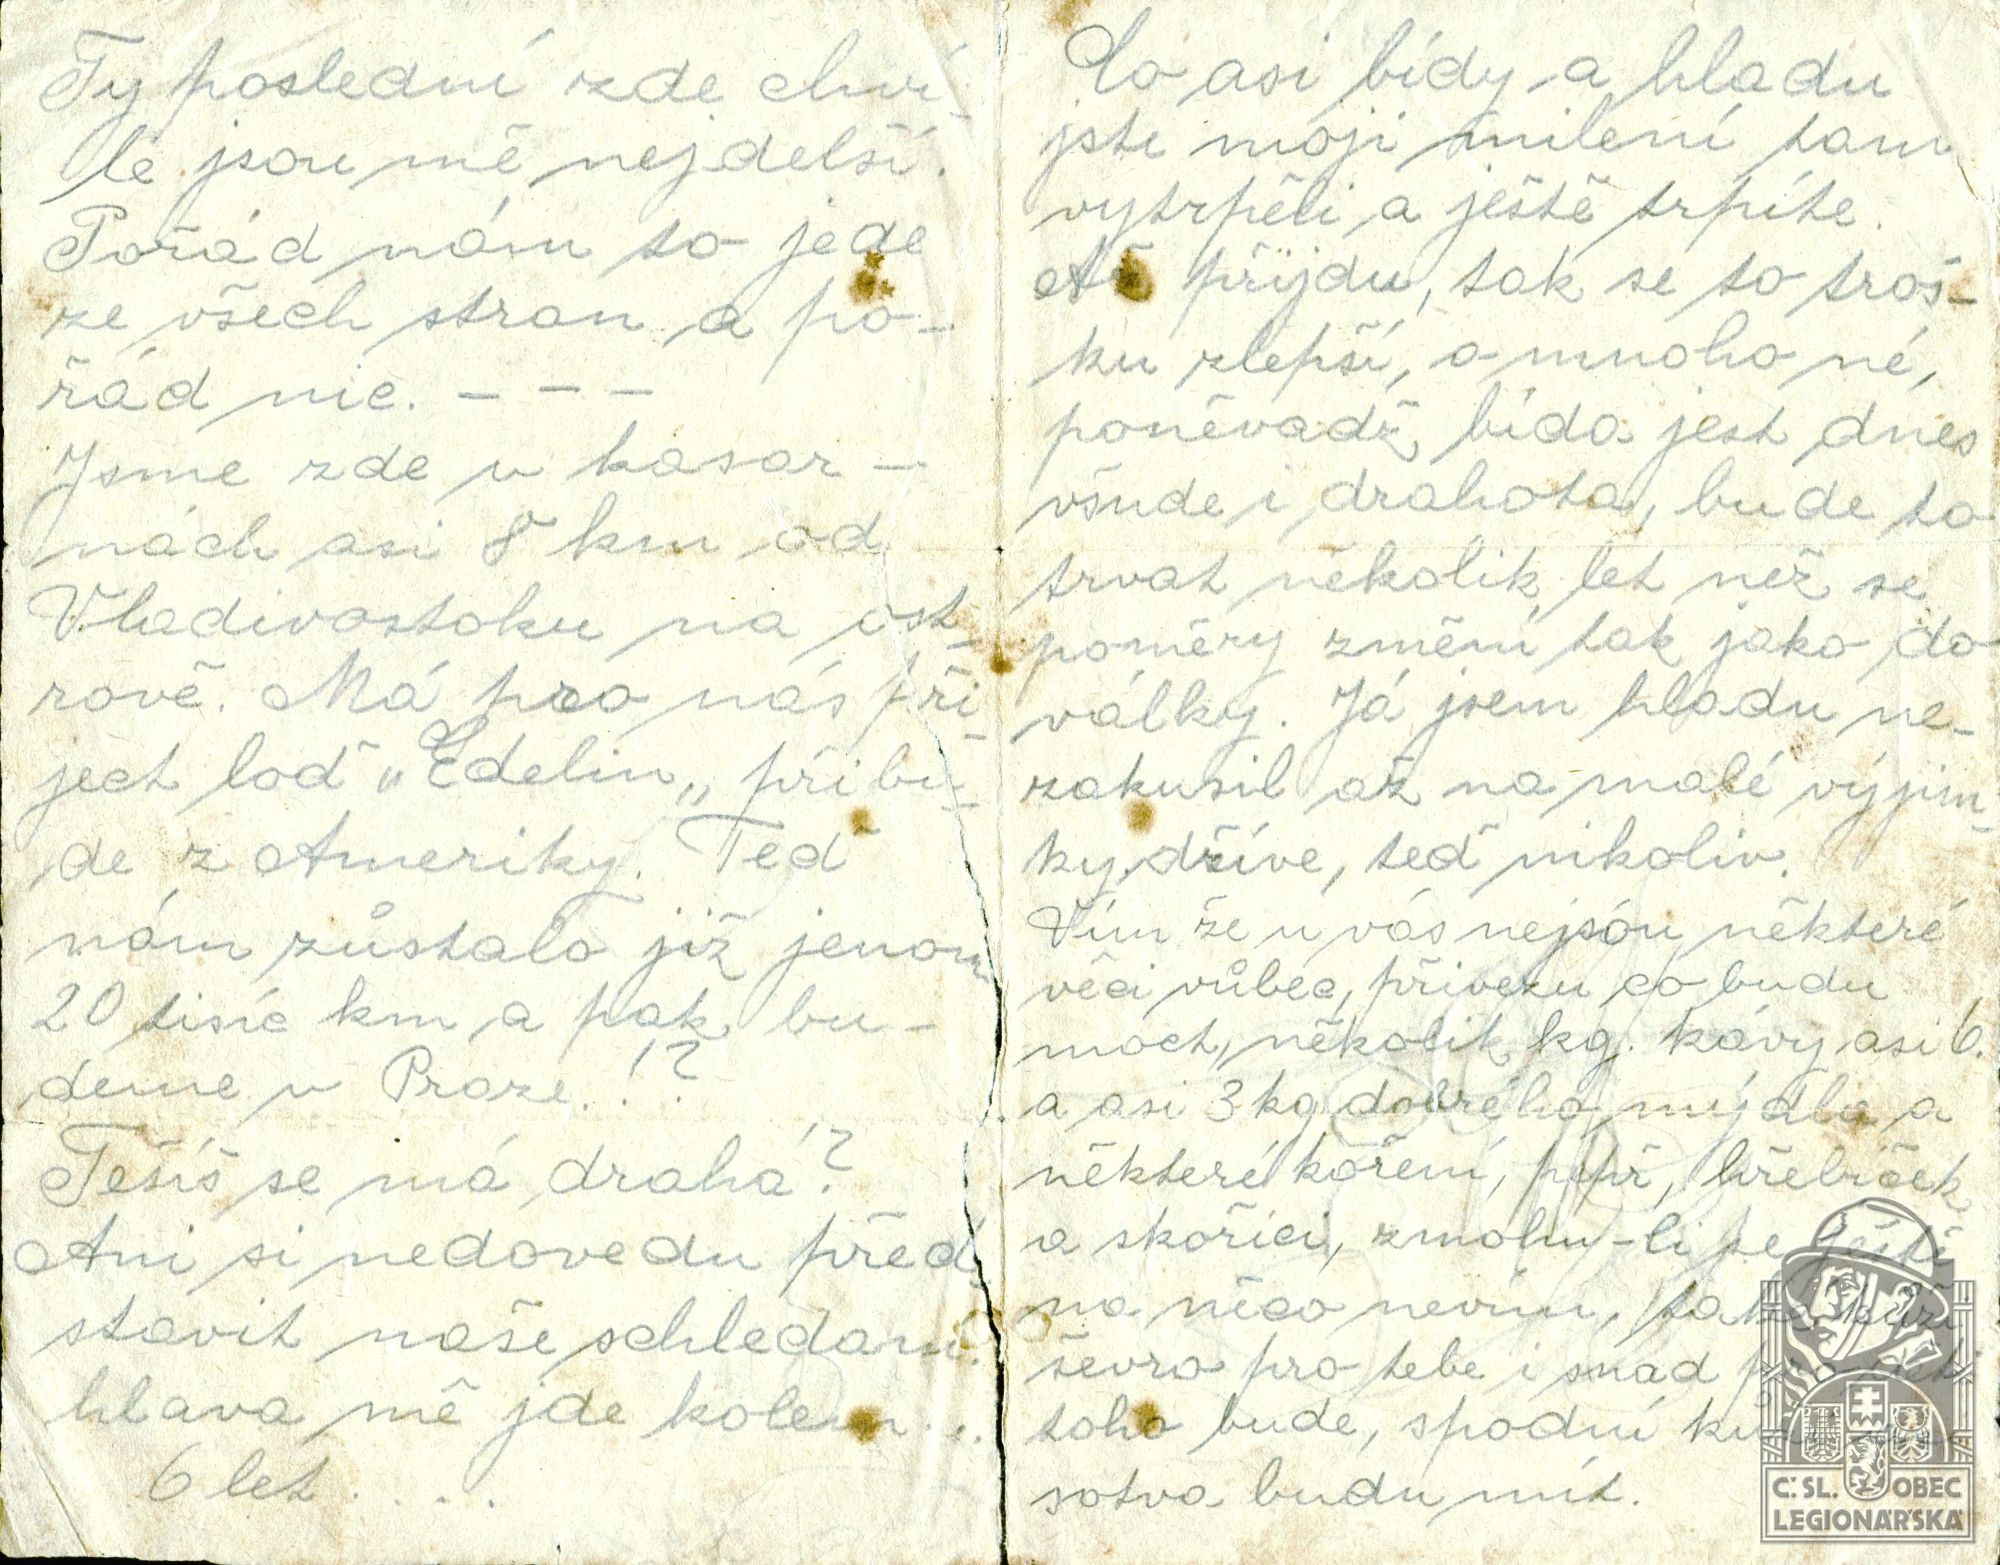 Ty poslední zde chví-
le jsou mě nejdelší.
Pořád nám to jede
ze všech stran a po-
řád nic. - - -
Jsme zde v kasar-
nách asi 8 km od
Vladivostoku na ost-
rově. Má pro nás při-
ject loď "Edelin" přibu-
de z Ameriky. Teď
nám zůstalo již jenom
20 tisíc km a pak bu-
deme v Praze.!?
Tešíš se má drahá?
Ani si nedovedu před-
stavit naše schledaní.
hlava mě jde kolem...
6 let....
Co asi bídy a hladu
jste moji milení tam
vytrpěli a ještě trpíte.
Až přijdu, tak se to troš-
ku zlepší, o mnoho né,
poněvadž bída jest dnes
všude i drahota, bude to
trvat několik let něž se
poměry změní tak jako do
války. Já jsem hladu ne-
zakusil až na malé výjim-
ky dříve, teď nikoliv.
Vím že u vás nejsou některé
věci vůbec, přivezu co budu
moct, několik kg. kávy asi 6.
a asi 3 kg dobrého mýdla a
některé koření, pepř, hřebíček
a skořici, zmohu-li se ještě
na něco nevím, také kůži
ševro pro tebe i snad pro
toho bude, spodní
sotva budu mít.
Č. SL. OBEC
LEGIONÁŘSKÁ